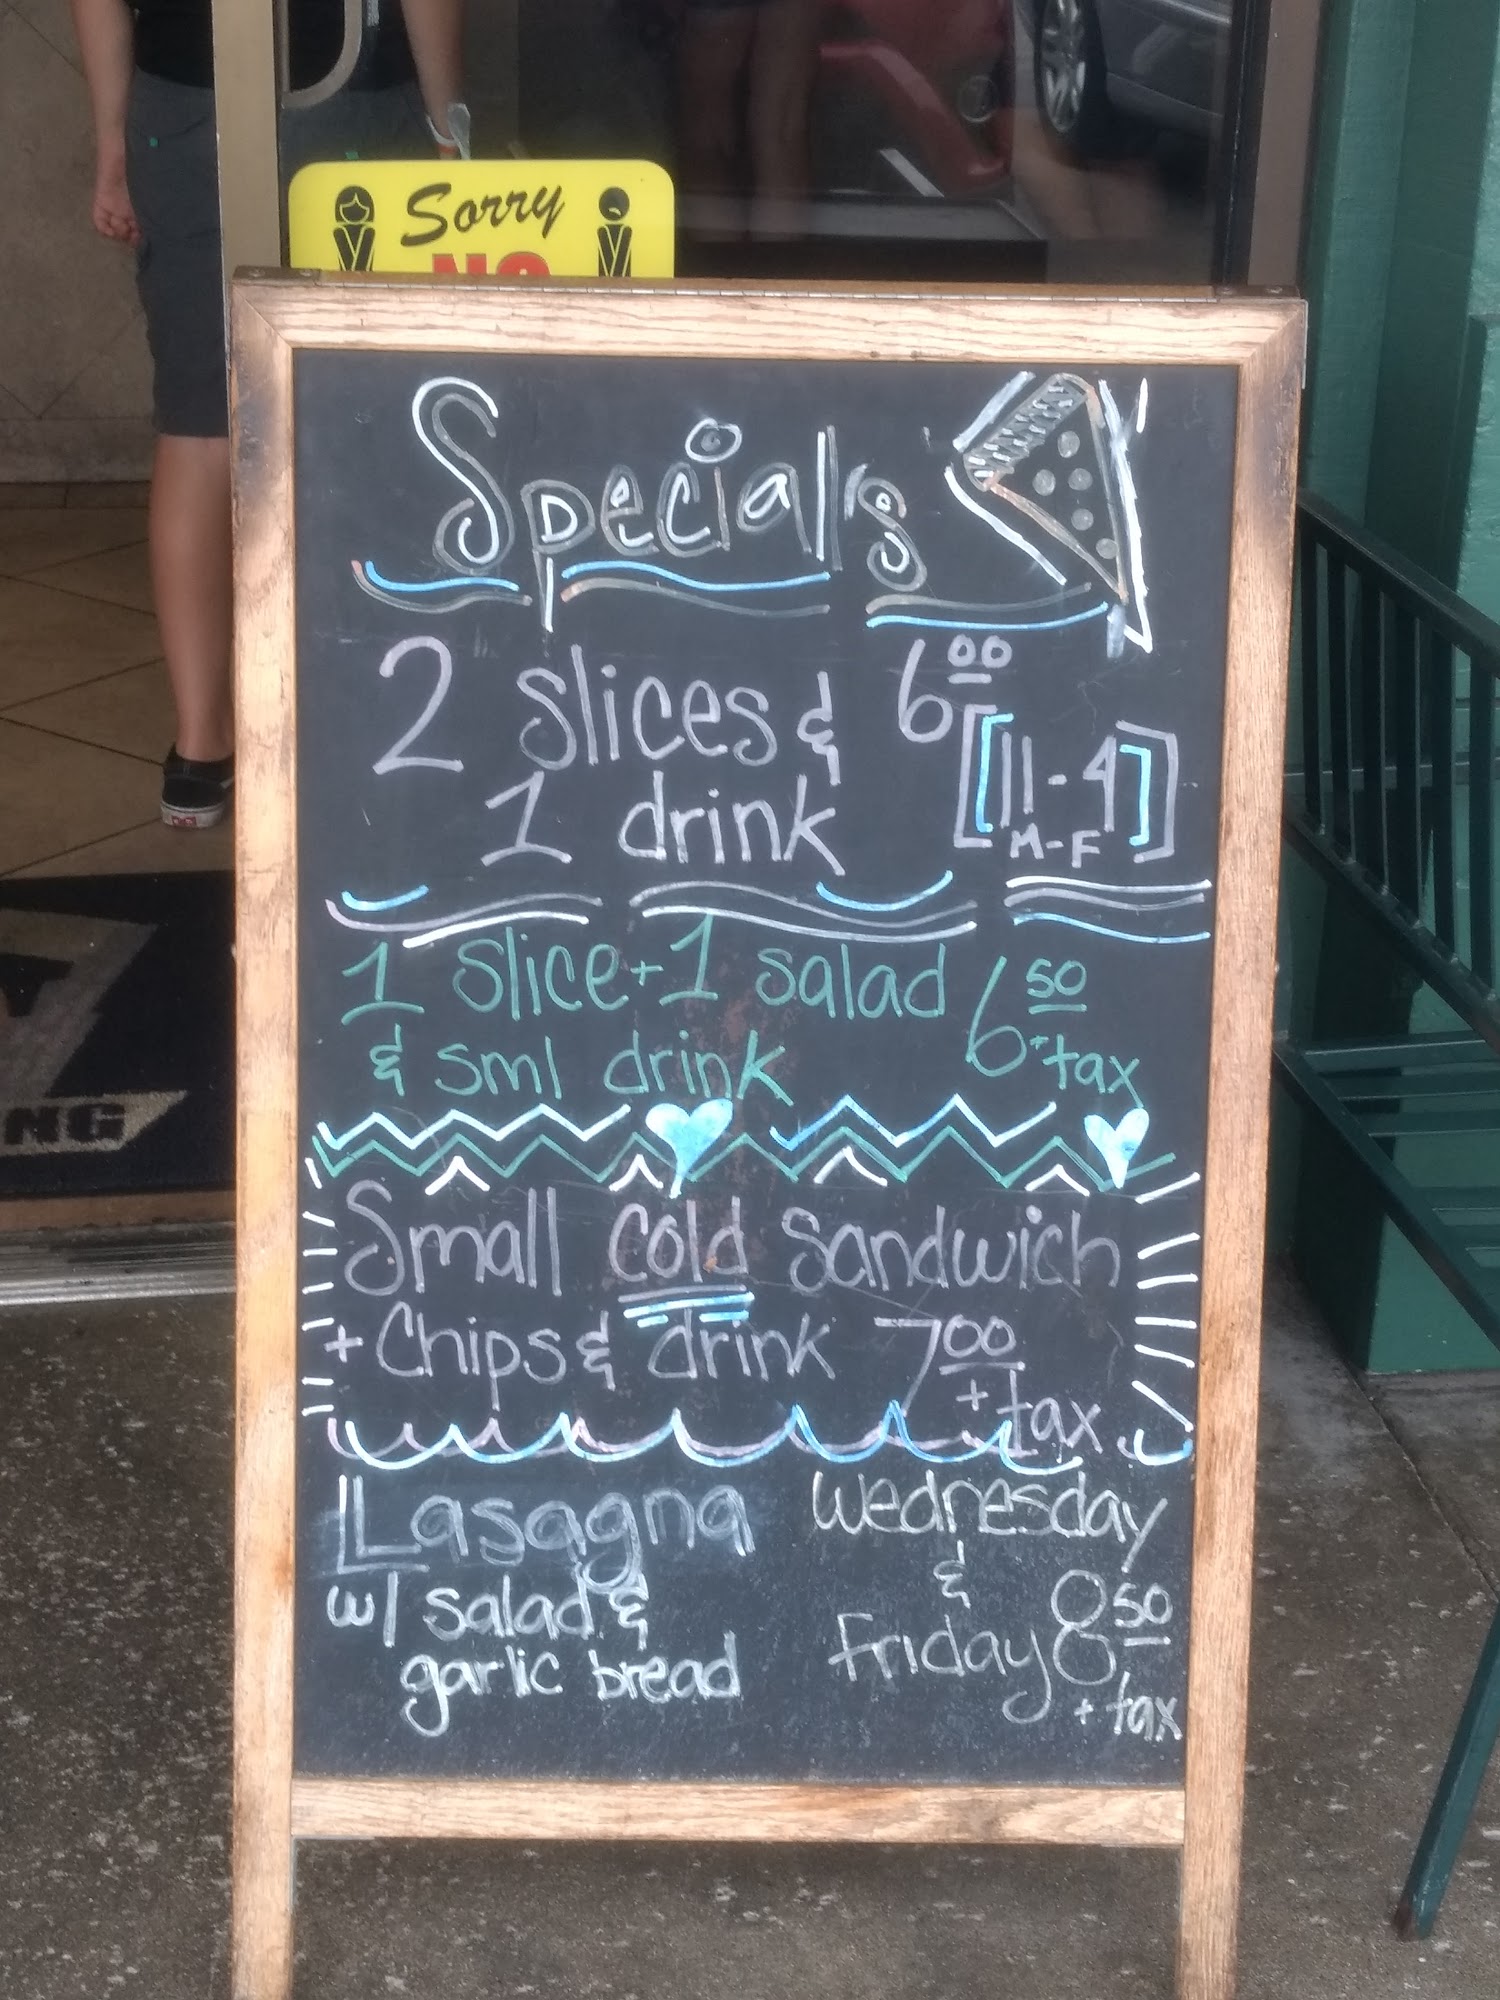 Sorry
NO
Specials
2 slices & 6 00
1 drink [11-4]
M-F
1 slice + 1 salad 6 50
& sml drink + tax
Small cold sandwich
+ Chips & drink 7 00
+ tax
Lasagna Wednesday
w/ salad & &
garlic bread Friday 8 50
+ tax
NG